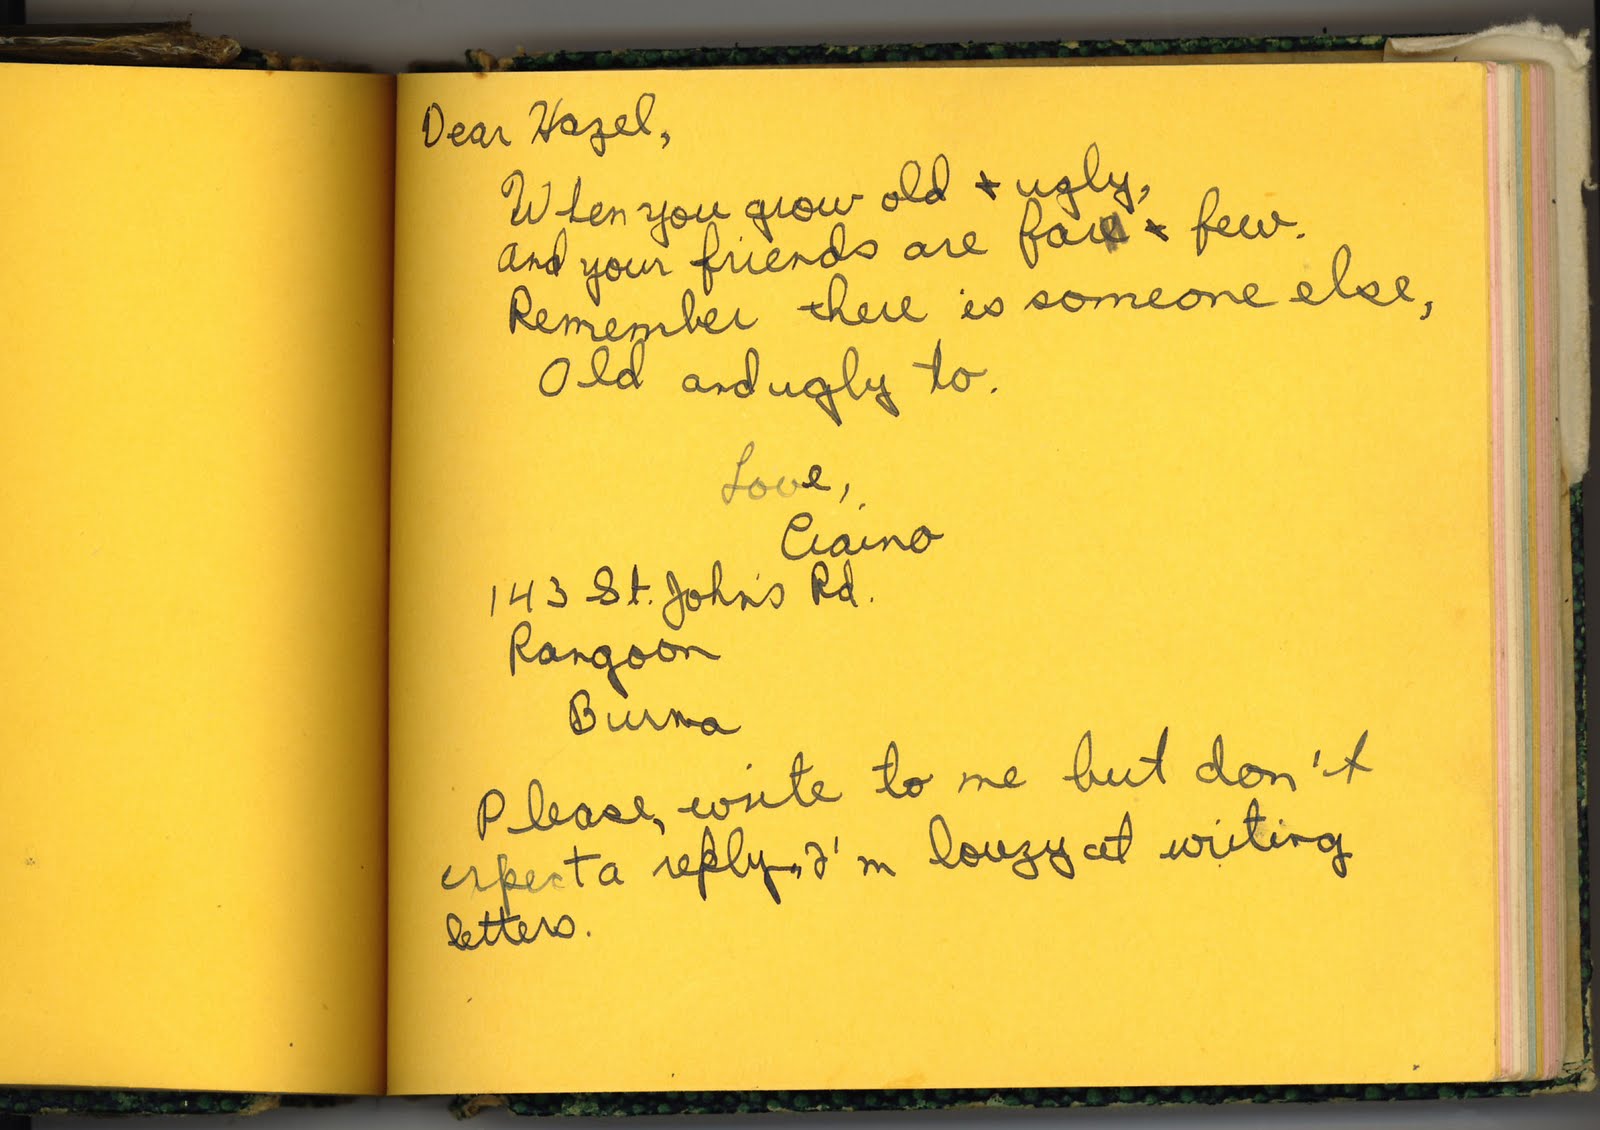 Dear Hazel,
When you grow old + ugly,
and your friends are far + few.
Remember there is someone else,
Old and ugly to.
Love,
143 St. John's Rd.
Rangoon
Burma
Please, write to me but don't
expect a reply, I'm louzy at writing
letters.